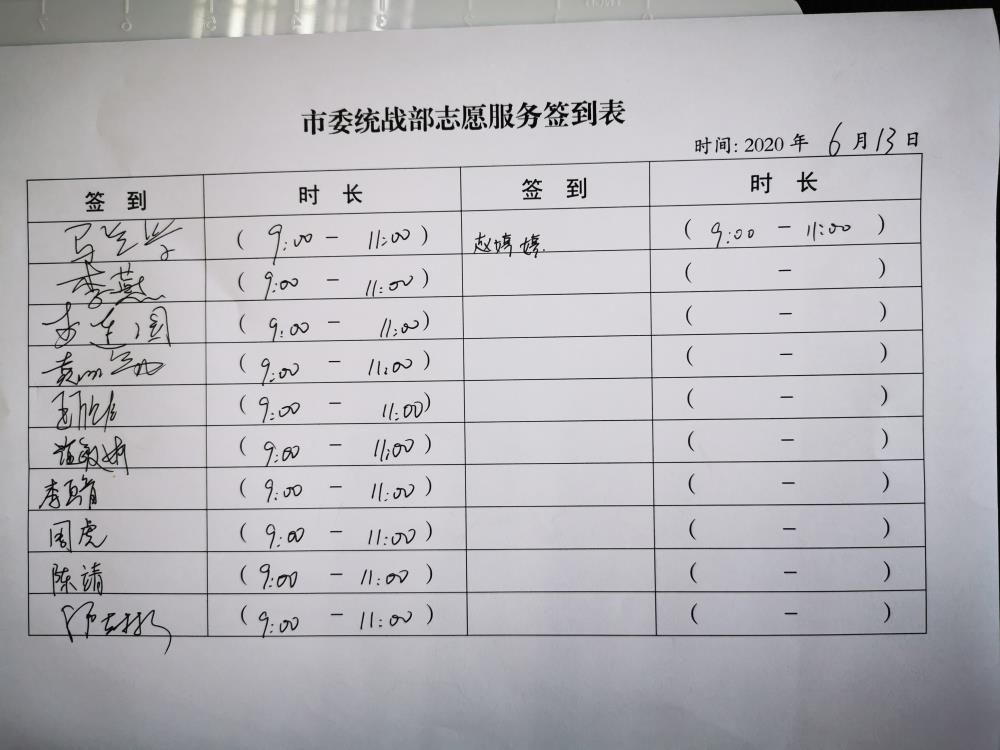 市委统战部志愿服务签到表
时间: 2020 年 6 月 13 日
签 到 时 长 签 到 时 长
( 9:00 - 11:00 ) 赵婷婷 ( 9:00 - 11:00 )
李燕 ( 9:00 - 11:00 ) ( - )
李连国 ( 9:00 - 11:00 ) ( - )
( 9:00 - 11:00 ) ( - )
( 9:00 - 11:00 ) ( - )
( 9:00 - 11:00 ) ( - )
( 9:00 - 11:00 ) ( - )
周虎 ( 9:00 - 11:00 ) ( - )
陈靖 ( 9:00 - 11:00 ) ( - )
( 9:00 - 11:00 ) ( - )